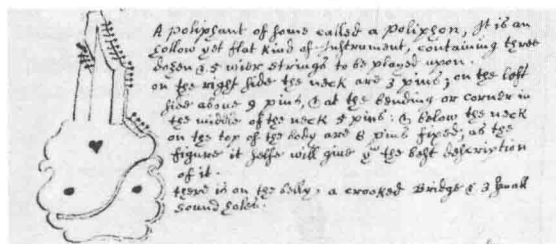 A poliphant of some called a Poliphon, It is an
hollow yet flat kind of Instrument, containing three
dozen & 5 wier strings to be played upon.
on the right side the neck are 3 pins; on the left
side above 9 pins, & at the bending or corner in
the middle of the neck 5 pins: & below the neck
on the top of the body are 8 pins fixed, as the
figure it selfe will give yu the best description
of it.
there is on the belly, a crooked Bridge & 3 small
sound holes.